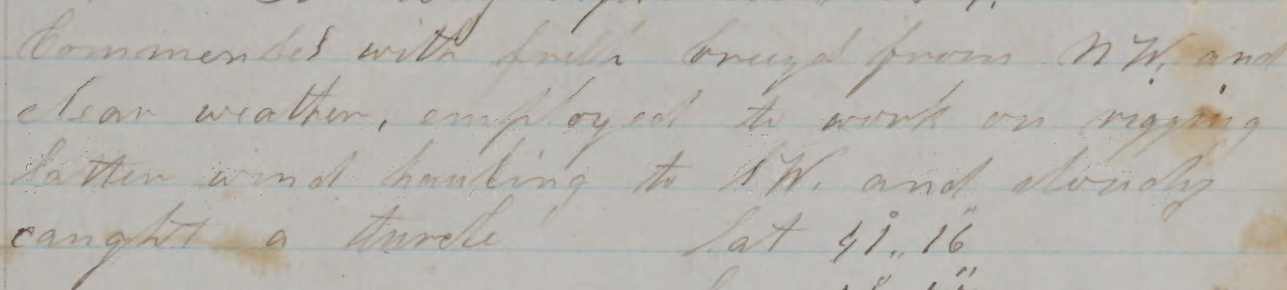 Commenses with fresh breeze from NW. and
clear weather, employed to work on rigging
latter wind hauling to SW. and cloudy
caught a turcle lat 41,, 16